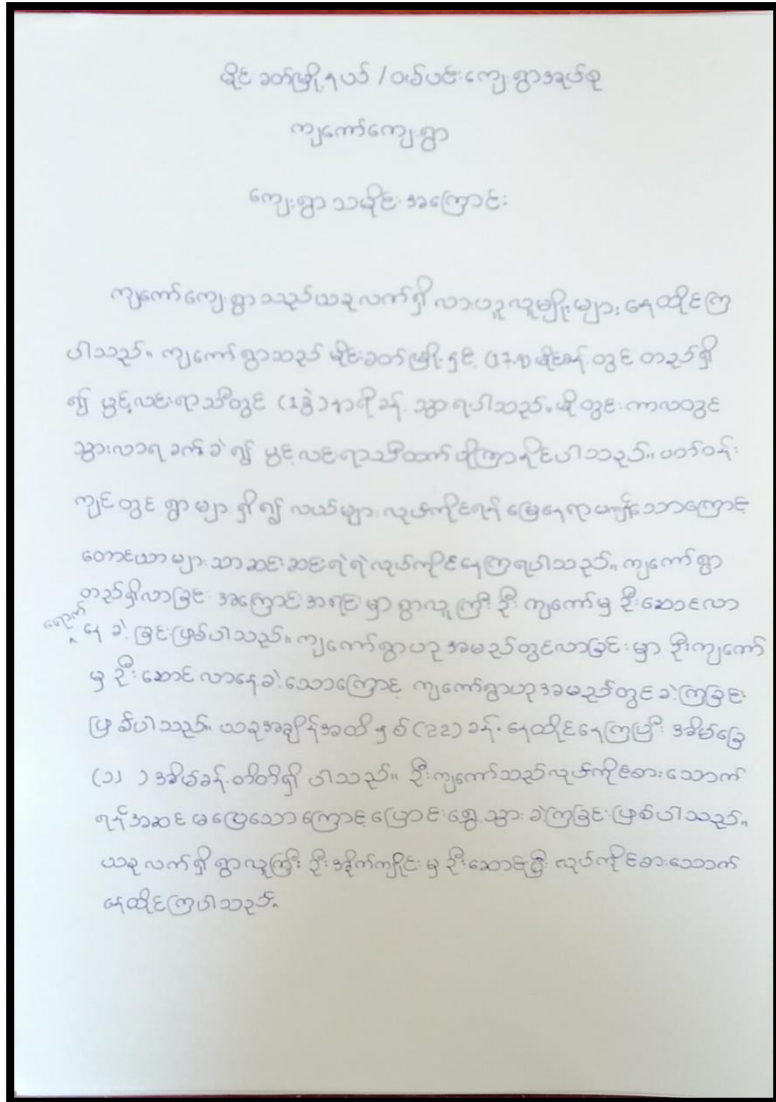 မိုင်းခတ်မြို့နယ် / ဝယ်ပင်းကျေးရွာအုပ်စု
ကျကော်ကျေးရွာ
ကျေးရွာသမိုင်းအကြောင်း
ကျကော်ကျေးရွာသည်ယခုလက်ရှိလားဟူလူမျိုးများနေထိုင်ကြ
ပါသည်။ ကျကော်ရွာသည် မိုင်းခတ်မြို့နှင့် (17.4) မိုင်ခန့်တွင် တည်ရှိ
၍ ပွင့်လင်းရာသီတွင် (1ခွဲ) နာရီခန့် သွားရပါသည်။ မိုးတွင်းကာလတွင်
သွားလာရခက်ခဲ၍ ပွင့်လင်းရာသီထက်ပိုကြာနိုင်ပါသည်။ ပတ်ဝန်း
ကျင်တွင် ရွာများရှိ၍ လယ်များလုပ်ကိုင်ရန်မြေနေရာမကျန်သောကြောင့်
တောင်ယာများသာဆင်းဆင်းရဲရဲလုပ်ကိုင်နေကြရပါသည်။ ကျကော်ရွာ
တည်ရှိလာခြင်းအကြောင်းအရင်းမှာရွာလူကြီးဦးကျကော်မှဦးဆောင်လာ
ရောက်နေခဲ့ခြင်းဖြစ်ပါသည်။ ကျကော်ရွာဟုအမည်တွင်လာခြင်းမှာ ဦးကျကော်
မှဦးဆောင်လာနေခဲ့သောကြောင့် ကျကော်ရွာဟုအမည်တွင်ခဲ့ကြခြင်း
ဖြစ်ပါသည်။ ယခုအချိန်အထိနှစ် (22) ခန့်နေထိုင်နေကြပြီး အိမ်ခြေ
(၁၂ ) အိမ်ခန့်တိတိရှိပါသည်။ ဦးကျကော်သည်လုပ်ကိုင်စားသောက်
ရန်အဆင်မပြေသောကြောင့်ပြောင်းရွှေ့သွားခဲ့ကြခြင်းဖြစ်ပါသည်။
ယခုလက်ရှိရွာလူကြီး ဦးအိုက်ကျိုင်းမှဦးဆောင်ပြီးလုပ်ကိုင်စားသောက်
နေထိုင်ကြပါသည်။